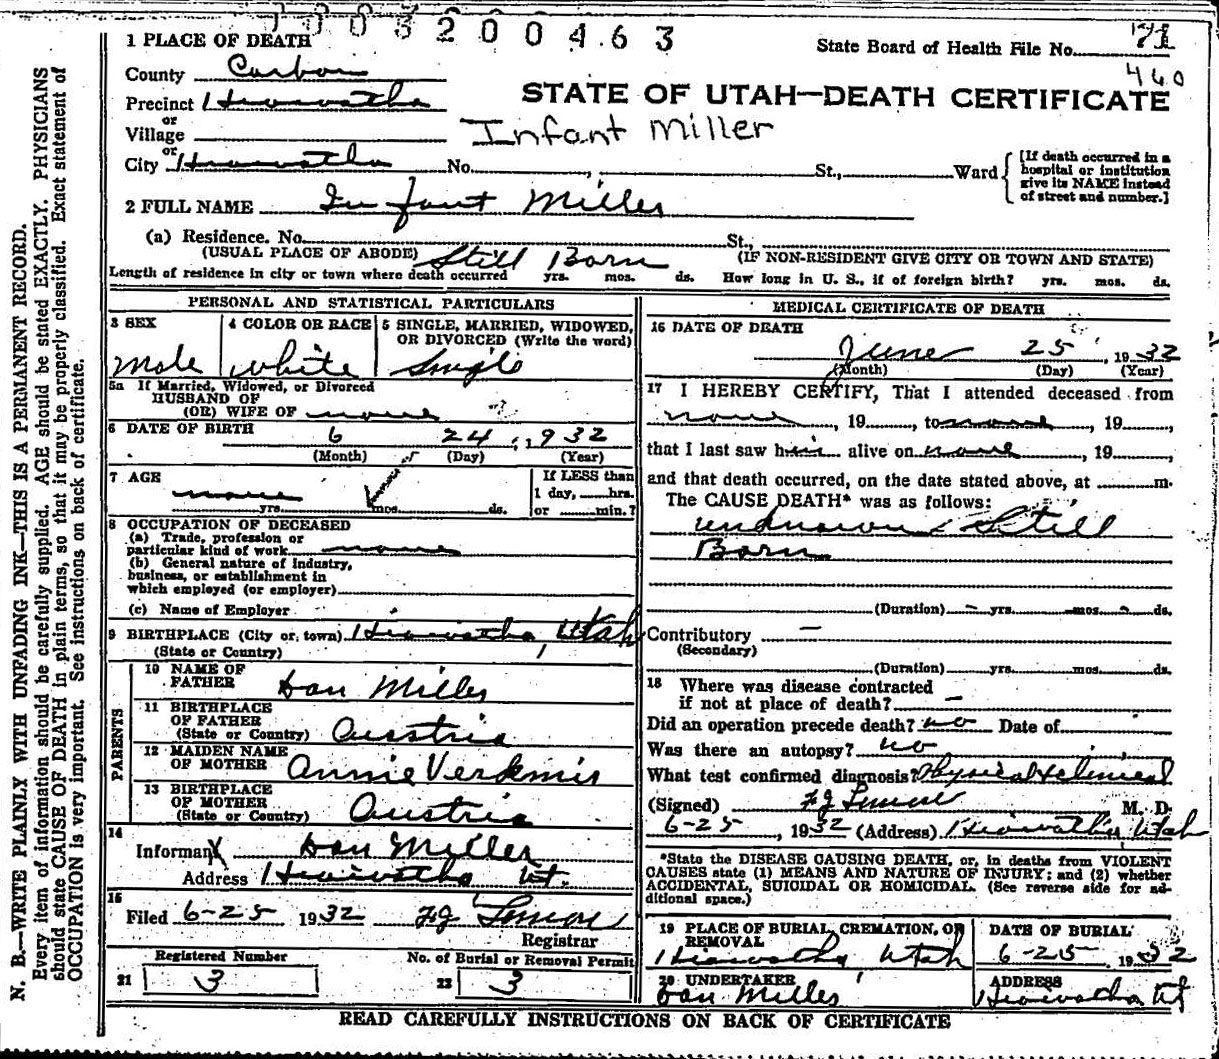 1003200463
1 PLACE OF DEATH
State Board of Health File No. 71
460
County Carbon
Precinct Hiawatha
STATE OF UTAH—DEATH CERTIFICATE
or
Village
Infant Miller
or
City Hiawatha No. St., Ward
[If death occurred in a hospital or institution give its NAME instead of street and number.]
2 FULL NAME Infant Miller
(a) Residence. No. St.,
(USUAL PLACE OF ABODE) Still Born (IF NON-RESIDENT GIVE CITY OR TOWN AND STATE)
Length of residence in city or town where death occurred yrs. mos. ds. How long in U. S., if of foreign birth? yrs. mos. ds.
PERSONAL AND STATISTICAL PARTICULARS
3 SEX
Male
4 COLOR OR RACE
White
5 SINGLE, MARRIED, WIDOWED,
OR DIVORCED (Write the word)
Single
5a If Married, Widowed, or Divorced
HUSBAND OF
(OR) WIFE OF none
6 DATE OF BIRTH 6 24, 1932
(Month) (Day) (Year)
7 AGE
none
yrs. mos. ds.
If LESS than
1 day, hrs.
or min.?
8 OCCUPATION OF DECEASED
(a) Trade, profession or
particular kind of work none
(b) General nature of industry,
business, or establishment in
which employed (or employer)
(c) Name of Employer
9 BIRTHPLACE (City or town) Hiawatha, Utah
(State or Country)
PARENTS
10 NAME OF
FATHER Dan Miller
11 BIRTHPLACE
OF FATHER
(State or Country) Austria
12 MAIDEN NAME
OF MOTHER Annie
13 BIRTHPLACE
OF MOTHER
(State or Country) Austria
14
Informant Dan Miller
Address Hiawatha Ut.
15
Filed 6-25 1932 FJ
Registrar
Registered Number
21 3
No. of Burial or Removal Permit
22 3
MEDICAL CERTIFICATE OF DEATH
16 DATE OF DEATH
June 25, 1932
(Month) (Day) (Year)
17 I HEREBY CERTIFY, That I attended deceased from
none, 19, to, 19,
that I last saw him alive on none, 19,
and that death occurred, on the date stated above, at m.
The CAUSE DEATH* was as follows:
unknown Still
Born
(Duration) yrs. mos. ds.
Contributory —
(Secondary)
(Duration) yrs. mos. ds.
18 Where was disease contracted
if not at place of death? —
Did an operation precede death? no Date of
Was there an autopsy? no
What test confirmed diagnosis? Physical & clinical
(Signed) FJ M. D.
6-25, 1932 (Address) Hiawatha, Utah
*State the DISEASE CAUSING DEATH, or, in deaths from VIOLENT
CAUSES state (1) MEANS AND NATURE OF INJURY; and (2) whether
ACCIDENTAL, SUICIDAL OR HOMICIDAL. (See reverse side for ad-
ditional space.)
19 PLACE OF BURIAL, CREMATION, OR
REMOVAL
Hiawatha Utah
DATE OF BURIAL
6-25, 1932
20 UNDERTAKER
Dan Miller
ADDRESS
Hiawatha Ut
READ CAREFULLY INSTRUCTIONS ON BACK OF CERTIFICATE
N. B.—WRITE PLAINLY WITH UNFADING INK—THIS IS A PERMANENT RECORD.
Every item of information should be carefully supplied. AGE should be stated EXACTLY. PHYSICIANS
should state CAUSE OF DEATH in plain terms, so that it may be properly classified. Exact statement of
OCCUPATION is very important. See instructions on back of certificate.